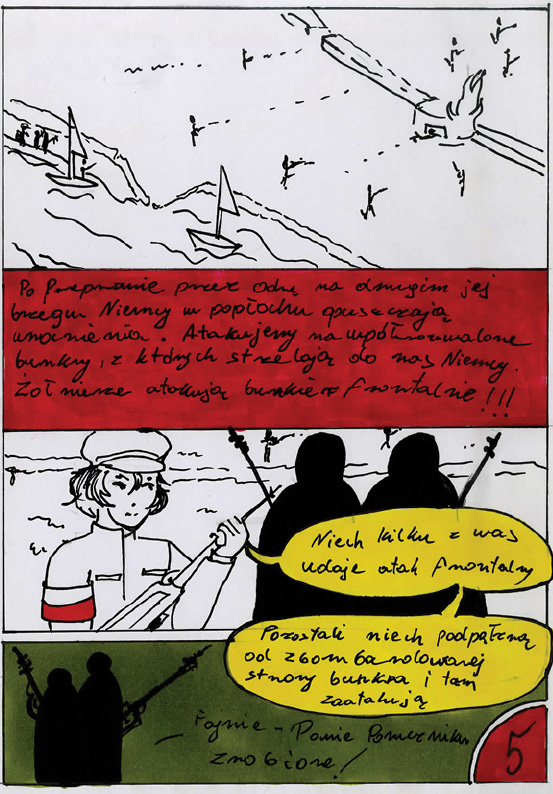 Po Preprawie przez odrę na drugim jej
brzegu Niemcy w popłochu opuszczają
umocnienia. Atakujemy na wpół rozwalone
bunkry, z których strzelają do nas Niemcy.
Żołnierze atakują bunkier frontalnie!!!
Niech kilku z was
udaje atak frontalny
Pozostali niech podpełzną
od zbombardowanej
strony bunkra i tam
zaatakują
- Fajnie - Panie Poruczniku
zrobione!
5